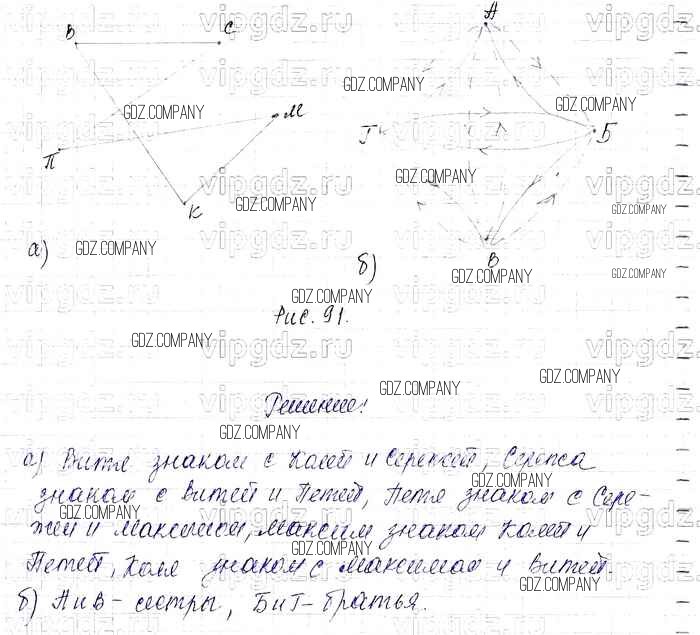 В С А
М
П Г Б
К
В
а) б)
Рис. 91.
Решение:
а) Витя знаком с Колей и Сережей, Сережа
знаком с Витей и Петей, Петя знаком с Сере-
жей и Максимом, Максим знаком Колей и
Петей, Коля знаком с Максимом и Витей.
б) А и В - сестры, Б и Г - братья.
vipgdz.ru
GDZ.COMPANY